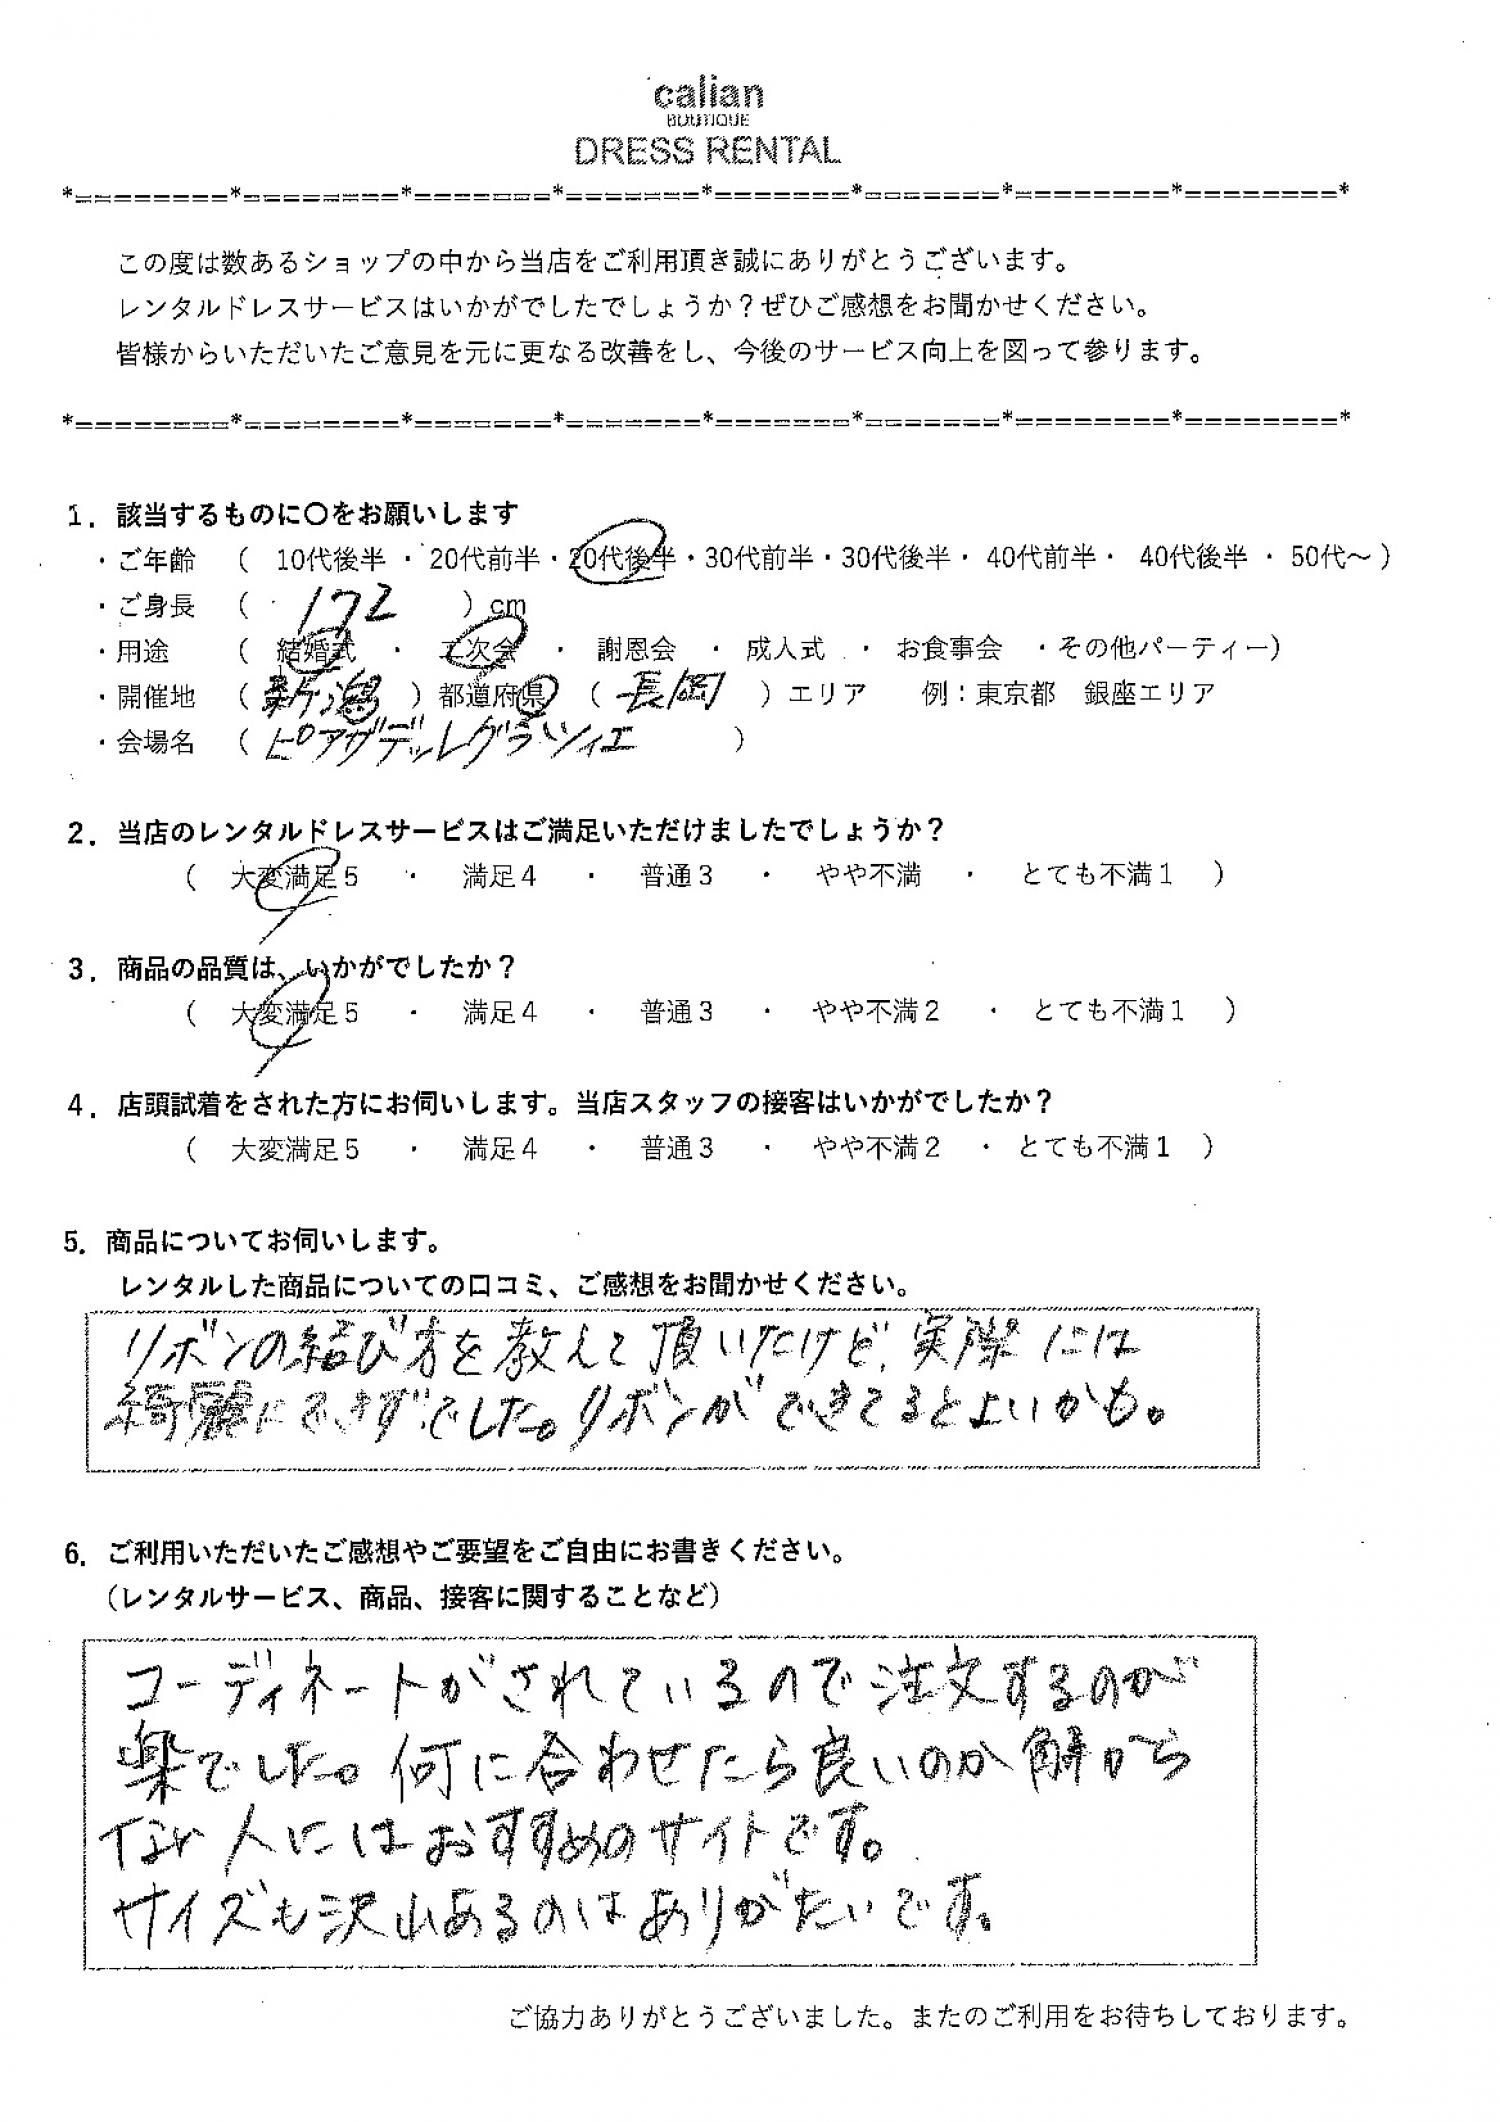 calian
BOUTIQUE
DRESS RENTAL
*========*========*=======*=======*=======*=======*========*========*
この度は数あるショップの中から当店をご利用頂き誠にありがとうございます。
レンタルドレスサービスはいかがでしたでしょうか？ぜひご感想をお聞かせください。
皆様からいただいたご意見を元に更なる改善をし、今後のサービス向上を図って参ります。
*========*========*=======*=======*=======*=======*========*========*
1．該当するものに〇をお願いします
・ご年齢 （ 10代後半 ・ 20代前半・20代後半・30代前半・30代後半・ 40代前半・ 40代後半 ・ 50代～ ）
・ご身長 （ 172 ）cm
・用途 （ 結婚式 ・ 二次会 ・ 謝恩会 ・ 成人式 ・ お食事会 ・その他パーティー）
・開催地 （ 新潟 ）都道府県 （ 長岡 ）エリア 例：東京都 銀座エリア
・会場名 （ ピアザデッレグラツィエ ）
2．当店のレンタルドレスサービスはご満足いただけましたでしょうか？
（ 大変満足５ ・ 満足４ ・ 普通３ ・ やや不満 ・ とても不満１ ）
3．商品の品質は、いかがでしたか？
（ 大変満足５ ・ 満足４ ・ 普通３ ・ やや不満２ ・ とても不満１ ）
4．店頭試着をされた方にお伺いします。当店スタッフの接客はいかがでしたか？
（ 大変満足５ ・ 満足４ ・ 普通３ ・ やや不満２ ・ とても不満１ ）
5．商品についてお伺いします。
レンタルした商品についての口コミ、ご感想をお聞かせください。
リボンの結び方を教えて頂いたけど、実際には
綺麗にできずでした。リボンができてるとよいかも。
6．ご利用いただいたご感想やご要望をご自由にお書きください。
（レンタルサービス、商品、接客に関することなど）
コーディネートがされているので注文するのが
楽でした。何に合わせたら良いのか解から
ない人にはおすすめのサイトです。
サイズも沢山あるのはありがたいです。
ご協力ありがとうございました。またのご利用をお待ちしております。